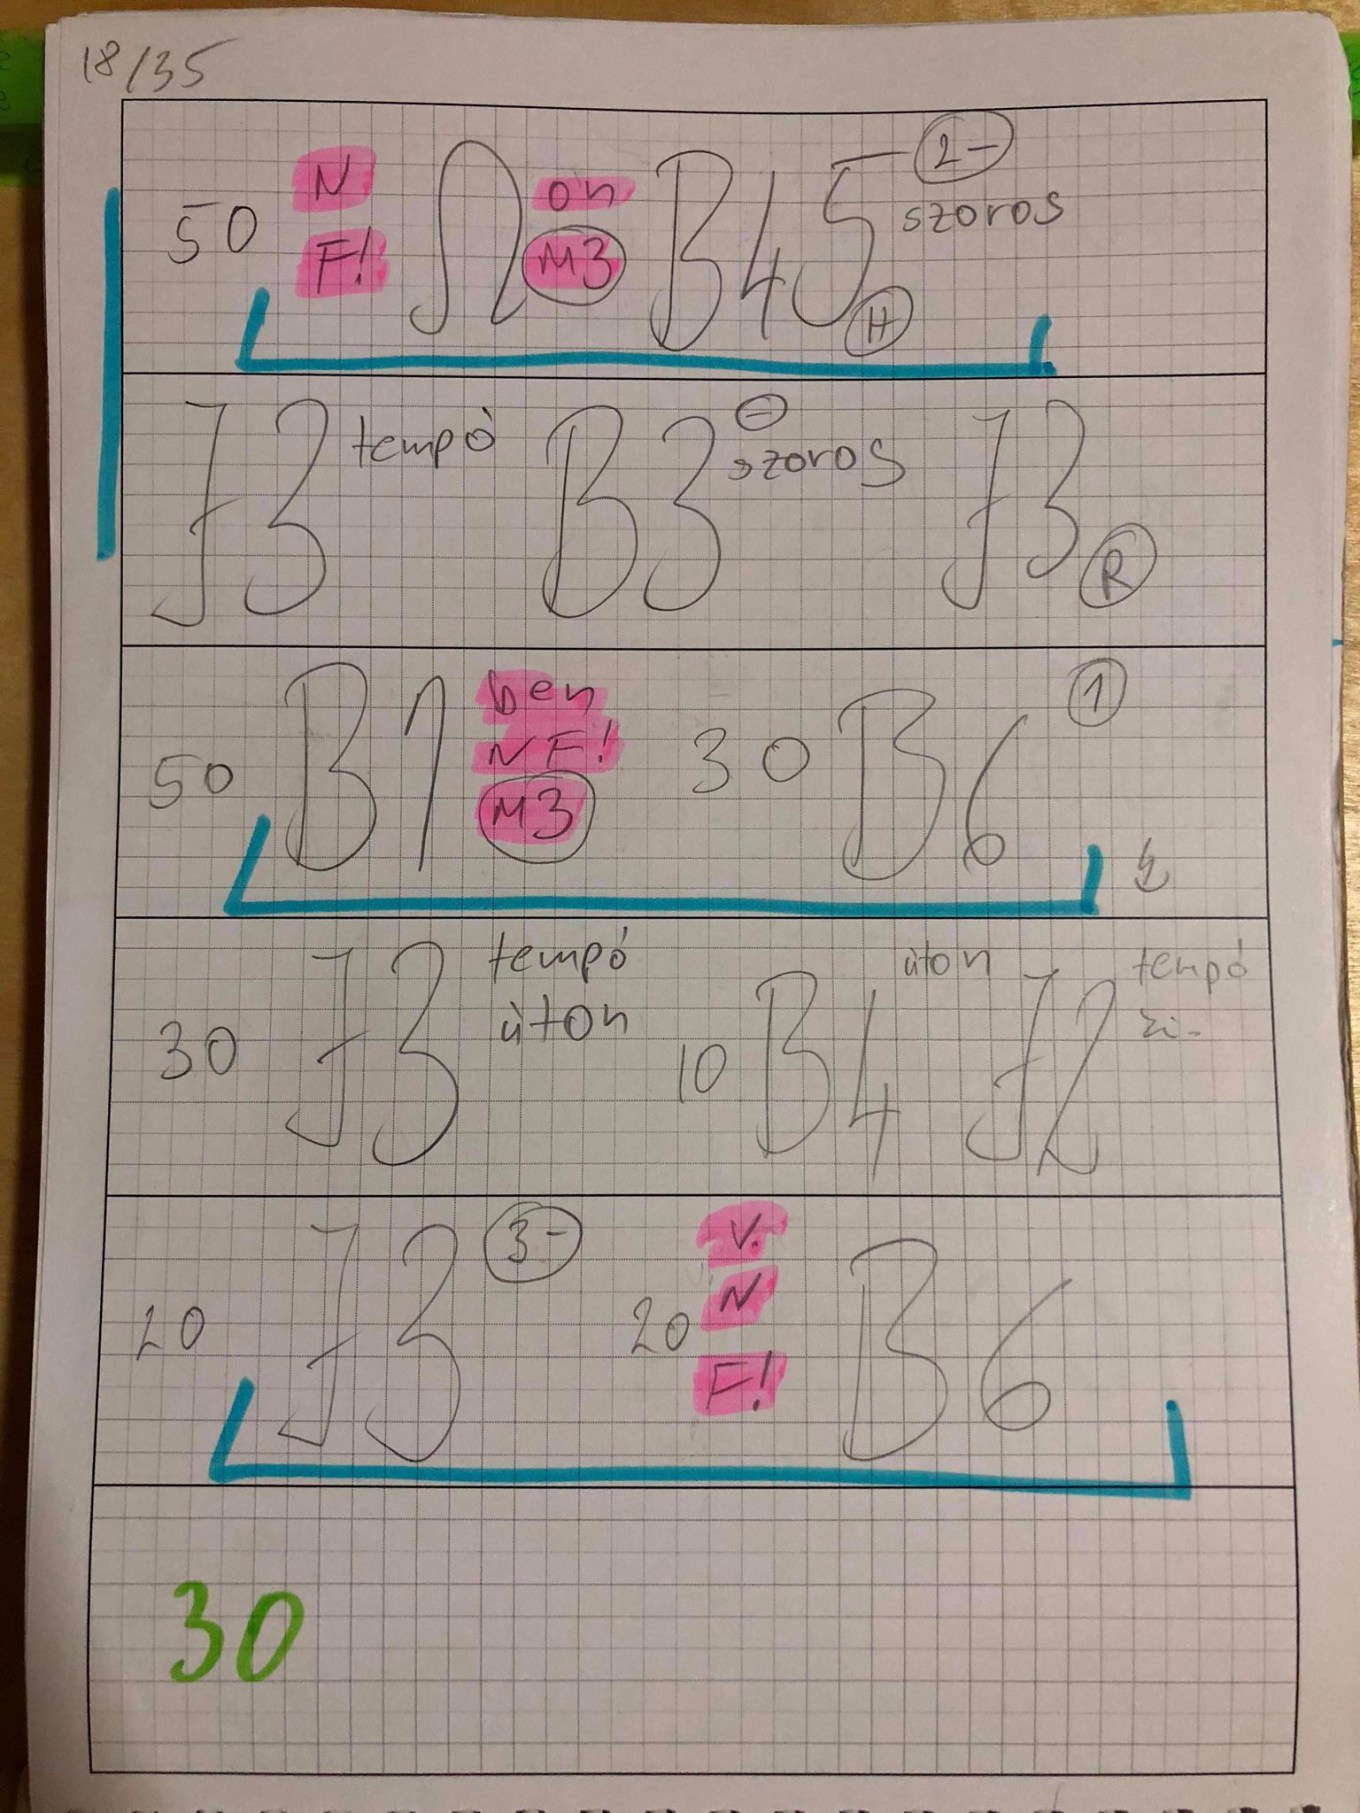 18/35
50 N F! Ω on M3 B45 H 2- szoros
J3 tempó B3 - szoros J3 R
50 B1 ben NF! M3 30 B6 1
30 J3 tempó úton 10 B4 úton J2 tempó
20 J3 3- 20 V. N F! B6
30